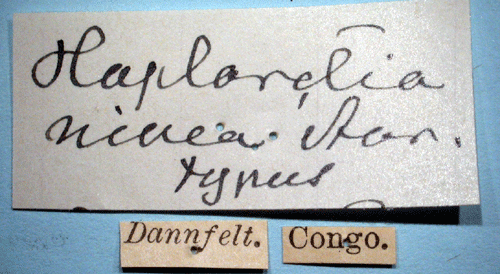 Haploretia
nivea. Aur.
typus
Dannfelt. Congo.